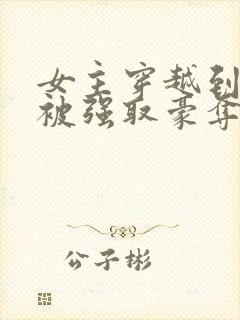 女主穿越到
被强取豪夺
公子彬